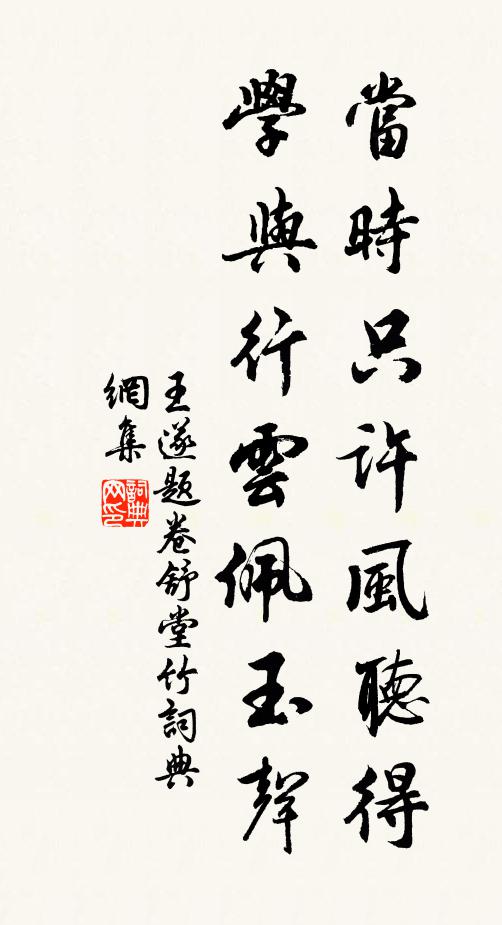 當時只許風聽得
學與行雲佩玉聲
王遂題卷舒堂竹詞典
網集
詞典
网印